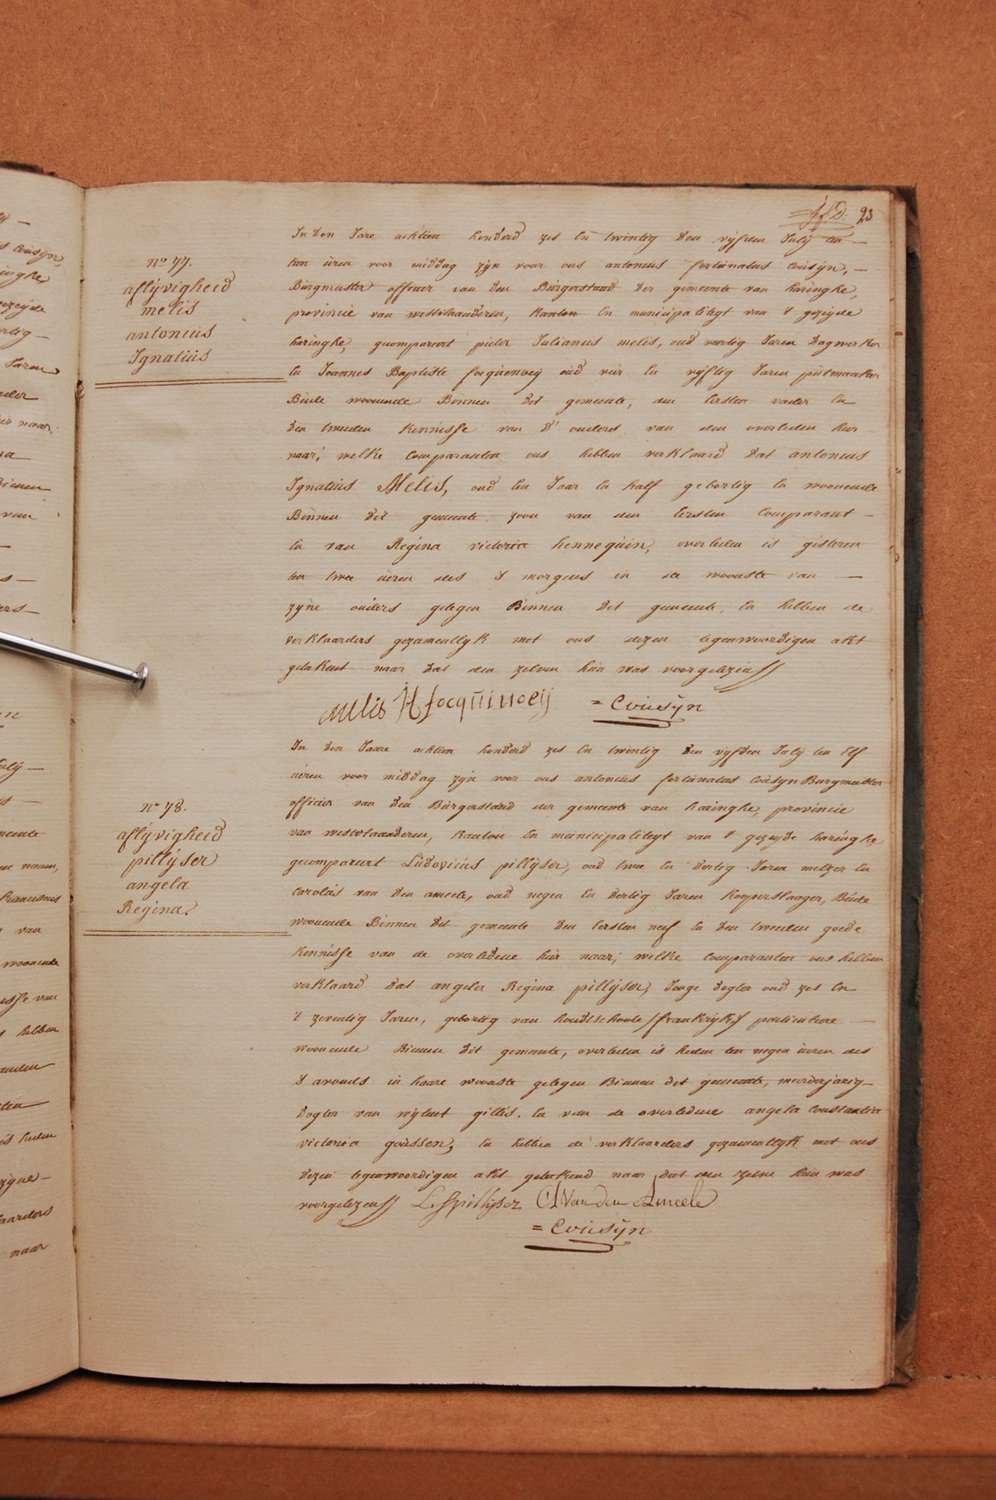 23
n° 77.
aflÿvigheid
melis
antonius
Ignatius
In den Jare achtien honderd zes en twintig den vyfden July ten
tien ùren voor middag zÿn voor ons antonius fortùnatus Coùsÿn, —
Bùrgmeester officier van den Bùrgerstand der gemeente van haringhe,
provincie van westvlaanderen, kanton en municipalityt van 't gezeyde
haringhe, gecompareert pieter Julianus melis, oud veertig Jaren Dagwerker
en Joannes Baptiste focquenoeij oùd vier en vyftig Jaren
Beide woonende Binnen Dit gemeente, den eersten vader en
den tweeden kennisse van d' ouders van den overleden hier
naar; welke comparanten ons hebben verklaard dat antonius
Ignatius Melis, oud een Jaar en half geborlig en woonende
Binnen dit gemeente zoon van den eersten Comparant —
en van Regina victoria hennequin, overleden is gisteren
ten twee ùren des 's morgens in de woonste van —
zÿne ouders gelegen Binnen dit gemeente, en hebben de
verklaarders gezamentlyk met ons dezen tegenwoordigen akt
geteekent naar dat den zelven hùn was voorgelezen
melis focquenoeÿ = Coùsÿn
n° 78.
aflÿvigheid
pillÿser
angela
Regina.
In den Jaare achtien honderd zes en twintig den vyfden Julÿ ten elf
ùren voor middag zÿn voor ons antonius fortùnatus Coùsÿn Burgmeester
officier van den Bùrgerstand der gemeente van haringhe, provincie
van westvlaanderen, kanton en municipalityt van 't gezeyde haringhe
gecompareert Lùdovicùs pillÿser, oud twee en dertig Jaren metzer en
carolùs van den ameele, oud negen en dertig Jaren koperslaeger, Beide
woonende Binnen dit gemeente den eersten neef en den tweeden goede
kennisse van de overledene hier naar; welke comparanten ons hebben
verklaard dat angela Regina pillÿser, Jonge dogter oud zes en
't zeventig Jaren, geborlig van houdtschoote /frankryk/ particuliere —
woonende Binnen dit gemeente, overleden is heden ten negen ùren des
's avonds in haare woonste gelegen Binnen dit gemeente, meerderjarig
dogter van gillis. en van de overledene angela Constantia
victoria goùssen, en hebben de verklaarders gezamentlyk met ons
dezen tegenwoordigen akt geteekend naar dat den zelven hùn was
voorgelezen L. pillÿser C Van den Ameele
= Coùsÿn